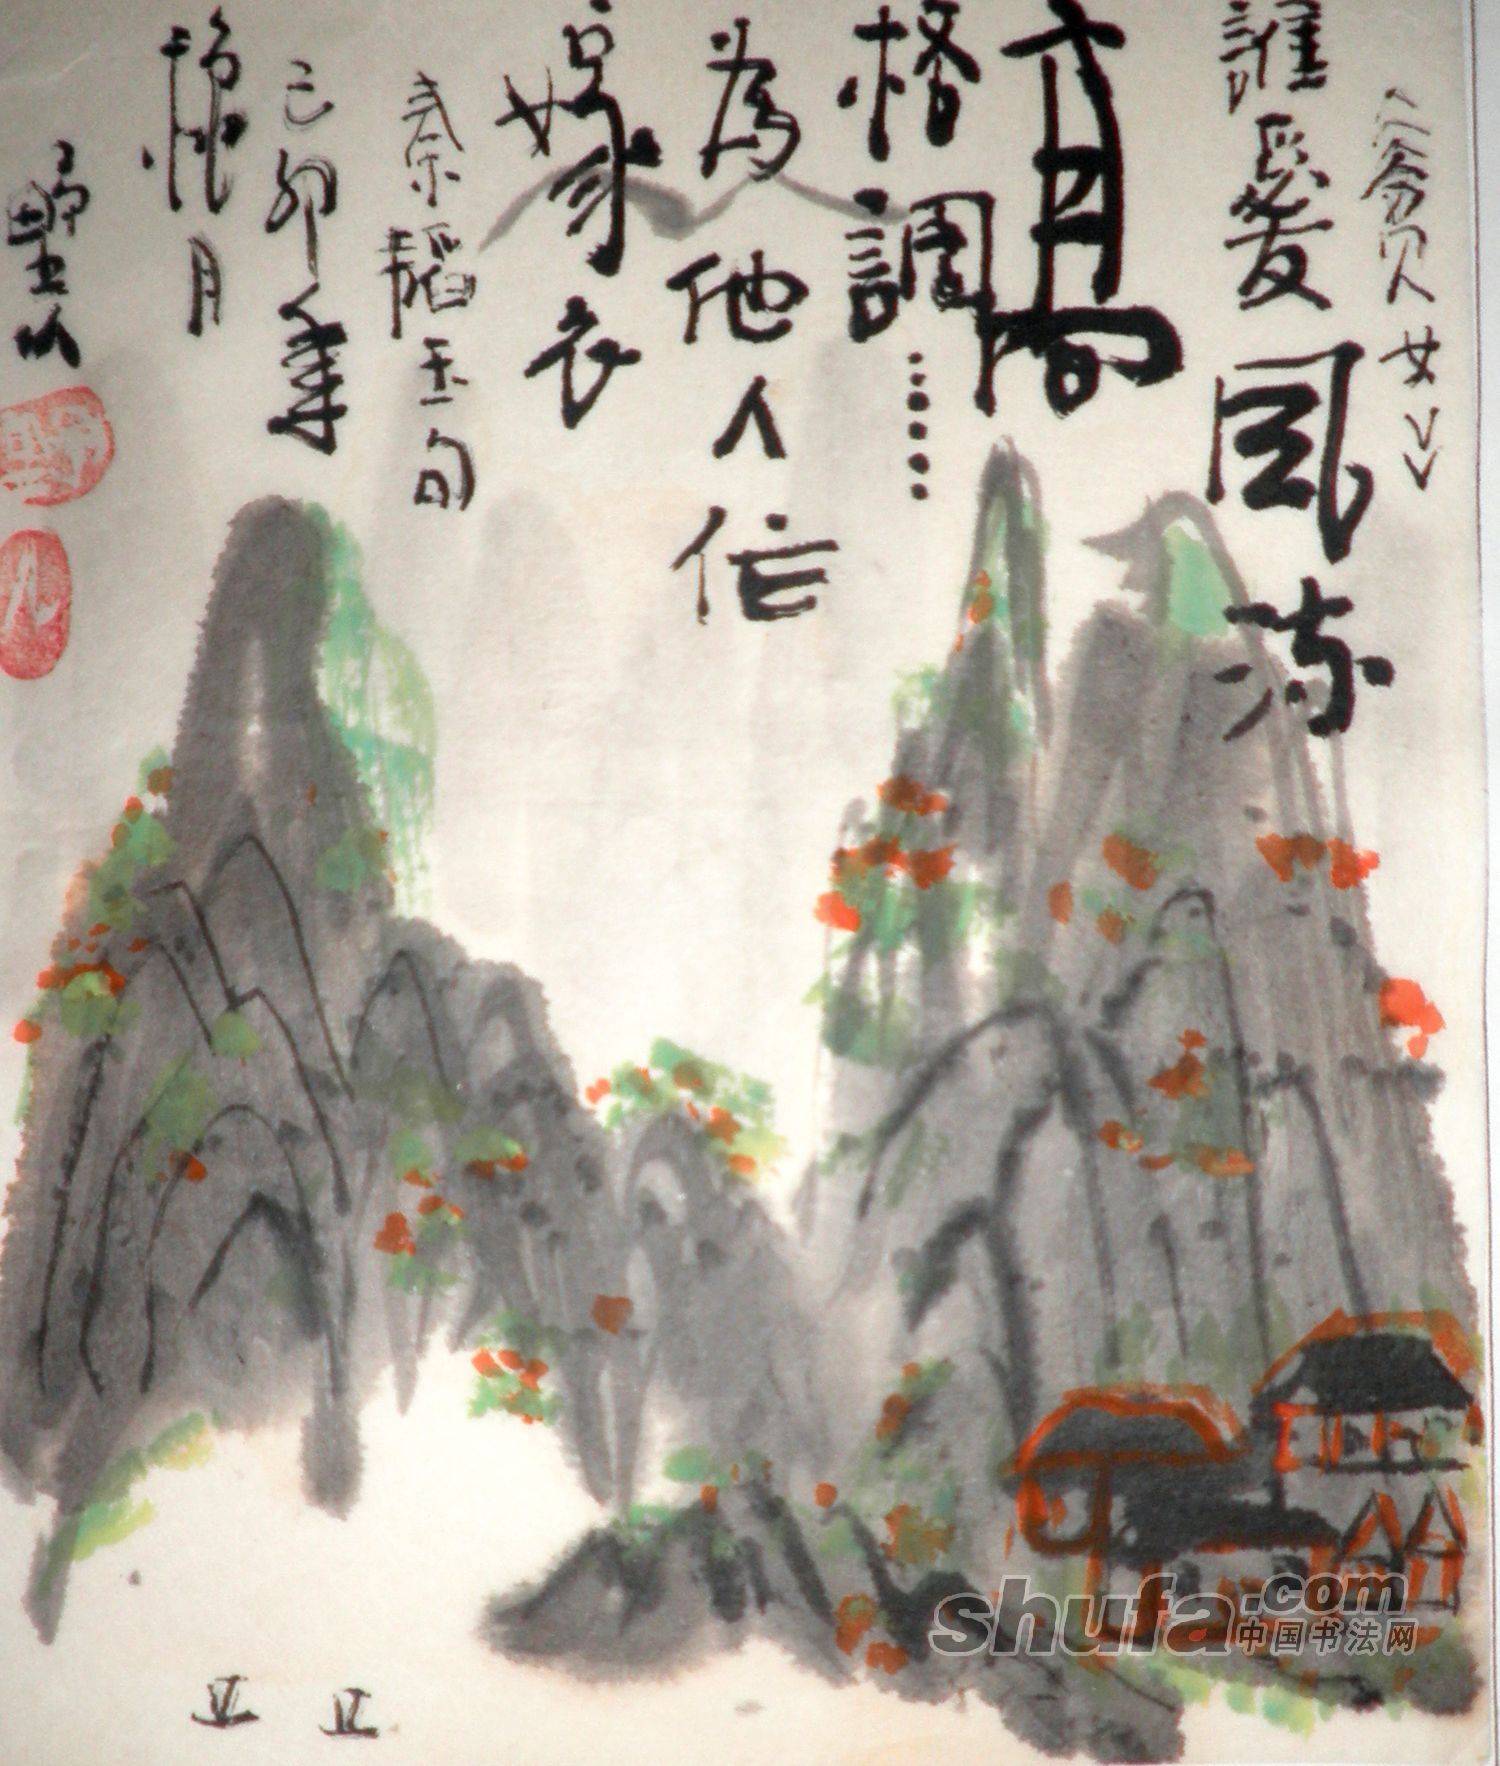 《貧女》
誰愛風流
高
格調……
為他人作
嫁衣
秦韜玉句
己卯年
桃月
shufa.com
中国书法网